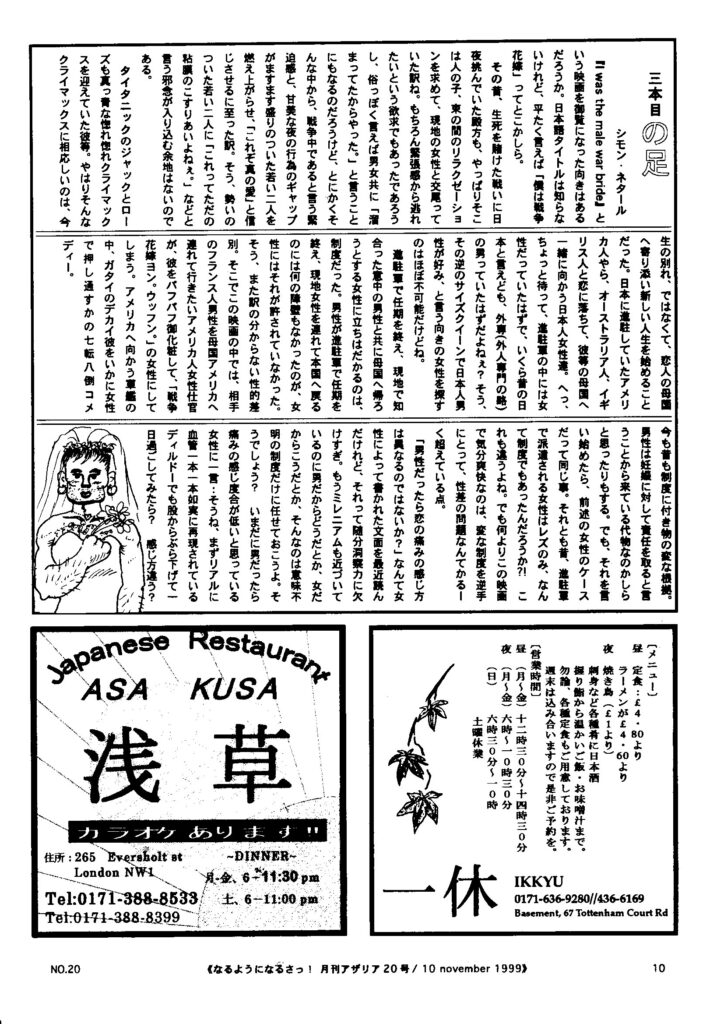 三本目の足
シモン・ネタール
『I was the male war bride』と
いう映画を御覧になった向きはある
だろうか。日本語タイトルは知らな
いけれど、平たく言えば「僕は戦争
花嫁」ってとこかしら。
その昔、生死を賭けた戦いに日
夜挑んでいた殿方も、やっぱりそこ
は人の子、束の間のリラクゼーショ
ンを求めて、現地の女性と交尾って
いた訳ね。もちろん緊張感から逃れ
たいという欲求でもあったであろう
し、俗っぽく言えば男女共に「溜
まってたからやった。」と言うこと
にもなるのだろうけど、とにかくそ
んな中から、戦争中であると言う緊
迫感と、甘美な夜の行為のギャップ
がますます盛りのついた若い二人を
燃え上がらせ、「これぞ真の愛」と信
じさせるに至った訳。そう、勢いの
ついた若い二人に「これってただの
粘膜のこすりあいよねぇ。」などと
言う邪念が入り込む余地はないので
ある。
タイタニックのジャックとロー
ズも真っ青な惚れ惚れクライマック
スを迎えていた彼等。やはりそんな
クライマックスに相応しいのは、今
生の別れ、ではなくて、恋人の母国
へ寄り添い新しい人生を始めること
だった。日本に進駐していたアメリ
カ人やら、オーストラリア人、イギ
リス人と恋に落ちて、彼等の母国へ
一緒に向かう日本人女性達。へっ、
ちょっと待って、進駐軍の中には女
性だっていたはずで、いくら昔の日
本と言えども、外専(外人専門の略)
の男っていたはずだよねぇ?そう、
その逆のサイズクイーンで日本人男
性が好み、と言う向きの女性を探す
のはほぼ不可能だけどね。
進駐軍で任期を終え、現地で知
合った意中の男性と共に母国へ帰ろ
うとする女性に立ちはだかるのは、
制度だった。男性が進駐軍で任期を
終え、現地女性を連れて本国へ戻る
のには何の障壁もなかったのが、女
性にはそれが許されていなかった。
そう、また訳の分からない性的差
別。そこでこの映画の中では、相手
のフランス人男性を母国アメリカへ
連れて行きたいアメリカ人女性仕官
が、彼をパフパフ御化粧して、「戦争
花嫁ヨン。ウッフン。」の女性にして
しまう。アメリカへ向かう軍艦の
中、ガタイのデカイ彼をいかに女性
で押し通すかの七転八倒コメ
ディー。
今も昔も制度に付き物の変な根拠。
男性は妊娠に対して責任を取ると言
うことから来ている代物なのかしら
と思ったりもする。でも、それを言
い始めたら、前述の女性のケース
だって同じ事。それとも昔、進駐軍
で派遣される女性はレズのみ、なん
て制度でもあったんだろうか?!こ
れも違うよね。でも何よりこの映画
で気分爽快なのは、変な制度を逆手
にとって、性差の問題なんてかるー
く超えている点。
「男性だったら恋の痛みの感じ方
は異なるのではないか?」なんて女
性によって書かれた文面を最近読ん
だけれど、それって随分洞察力に欠
けすぎ。もうミレニアムも近づいて
いるのに男だからどうだとか、女だ
からこうだとか、そんなのは意味不
明の制度だけに任せておこうよ。そ
うでしょう? いまだに男だったら
痛みの感じ度合が低いと思っている
女性に一言:そうね、まずリアルに
血管一本一本如実に再現されている
ディルドーでも股からぶら下げて一
日過ごしてみたら? 感じ方違う?
Japanese Restaurant
ASA KUSA
浅草
カラオケあります!!
住所:265 Eversholt st
London NW1
Tel:0171-388-8533
Tel:0171-388-8399
~DINNER~
月-金、6-11:30 pm
土、6-11:00 pm
[メニュー]
昼 定食:£4・80より
ラーメンが£4・60より
夜 焼き鳥(£1より)
刺身など各種肴に日本酒
握り鮨から温かいご飯・お味噌汁まで。
勿論、各種定食もご用意しております。
週末は込み合いますので是非ご予約を。
[営業時間]
昼(月〜金)十二時三0分〜十四時三0分
夜(月〜金)六時〜一0時三0分
(日)六時三0分〜一0時
土曜休業
一休
IKKYU
0171-636-9280//436-6169
Basement, 67 Tottenham Court Rd
NO.20
《なるようになるさっ! 月刊アザリア20号/ 10 november 1999》
10